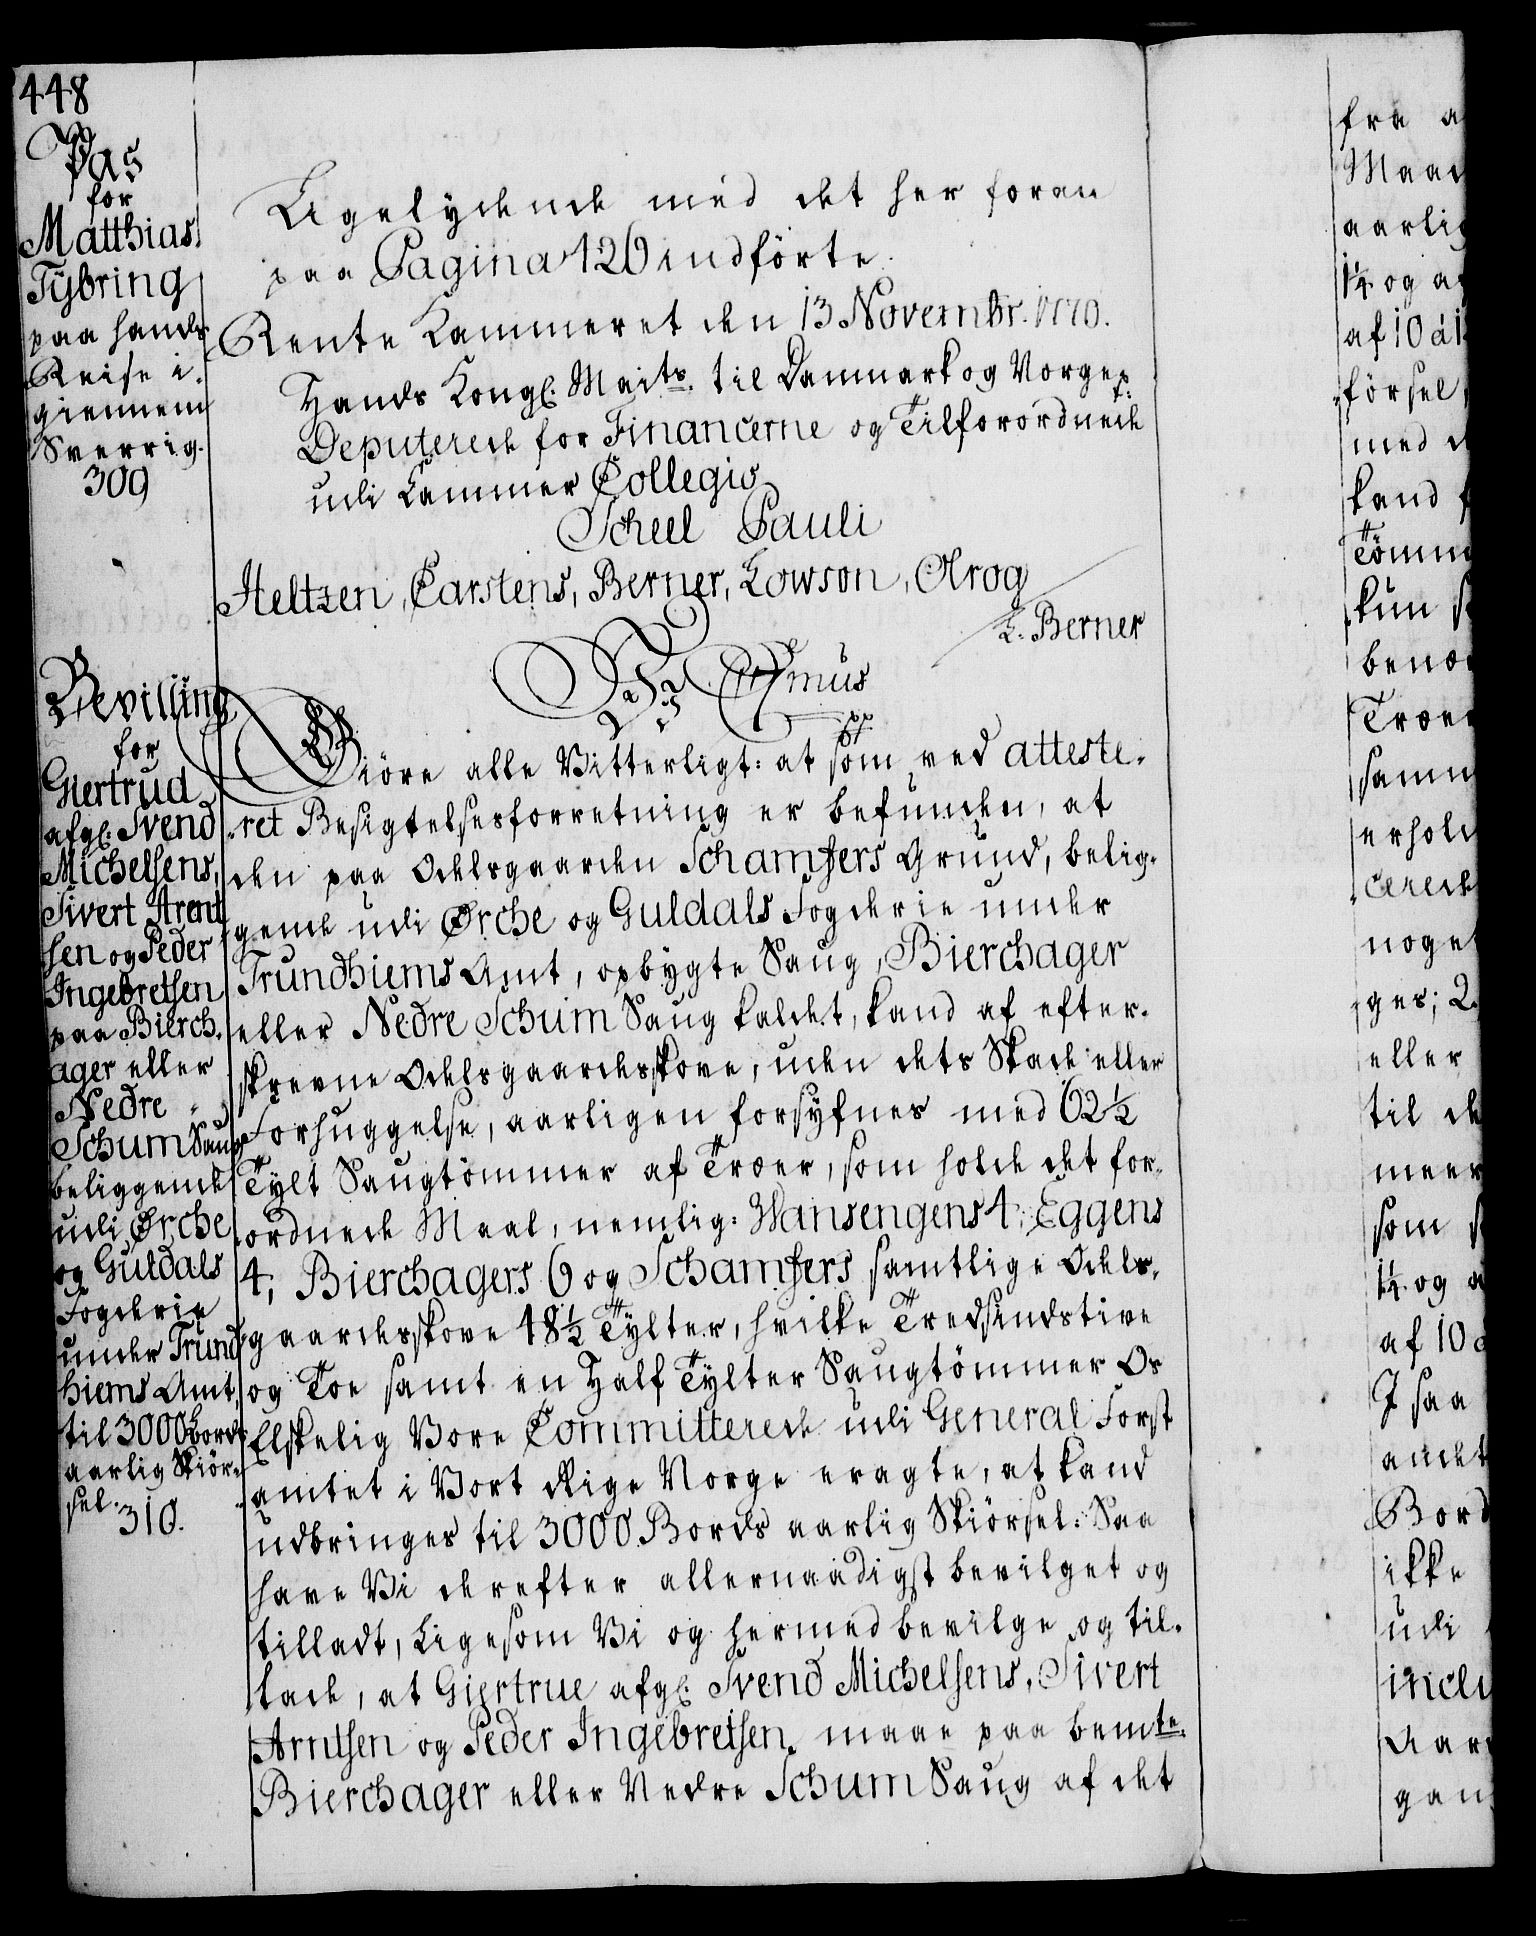 448
Pas
for
Matthias
Tÿbring
paa hands
Reise i-
giennem
Sverrig.
309
Ligelydende med det her foran
paa Pagina 126 indförte.
Rente Kammeret den 13 Novembr. 1770.
Hands Kongl. Maits. til Danmark og Norge p.
Deputerede for Financerne og Tilforordnede
udi Kammer Collegio
Scheel Pauli
Heltzen, Carstens, Berner, Lowson, Krog
L. Berner
Bevilling
for
Giertrud
afgl. Svend
Michelsens,
Sivert Arent
sen og Peder
Ingebretsen
paa Bierch-
ager eller
Nedre
Schum Saug
beliggende
udi Ørche
og Guldals
Fogderie
under Trund
hiems Amt,
til 3000 Bords
aarlig Skiör-
sel.
310.
Vi C 7mus
pp
Giöre alle Vitterligt: at som ved atteste-
ret Besigtelsesforretning er befunden, at
den paa Odelsgaarden Schamfers Grund, belig-
gende udi Ørche og Guldals Fogderie under
Trundhiems Amt, opbygte Saug, Bierchager
eller Nedre Schum Saug kaldet, kand af efter-
skrevne Odelsgaardsskove, uden dets Skade eller
Forhuggelse, aarligen forsyfnes med 62½
Tylt Saugtömmer af Træer, som holde det for-
ordnede Maal, nemlig: Wansengens 4; Eggens
4; Bierchagers 6 og Schamfers samtlige Odels-
gaardsskove 48½ Tÿlter, hvilke Tredsindstive
og Toe samt en Half Tylter Saugtömmer Os
Elskelig Vore Committerede udi General Forst
amtet i Vort Rige Norge eragte, at kand
udbringes til 3000 Bords aarlig Skiörsel: Saa
have Vi derefter allernaadigst bevilget og
tilladt, Ligesom Vi og hermed bevilge og til-
lade, at Giertrue afgl. Svend Michelsens, Sivert
Arntsen og Peder Ingebretsen maae paa bemte.
Bierchager eller Nedre Schum Saug af det
fra
Maa
aarlig
1¼ og
af 10 à
försel
med
kand
Tömm
kun
benæ
Træer
samm
erhold
cerede
noget
ges; 2.
eller
til de
meer
som
1¼ og
af 10
J saa
andet
Bord
ikke
udi
incl
Aar
gan